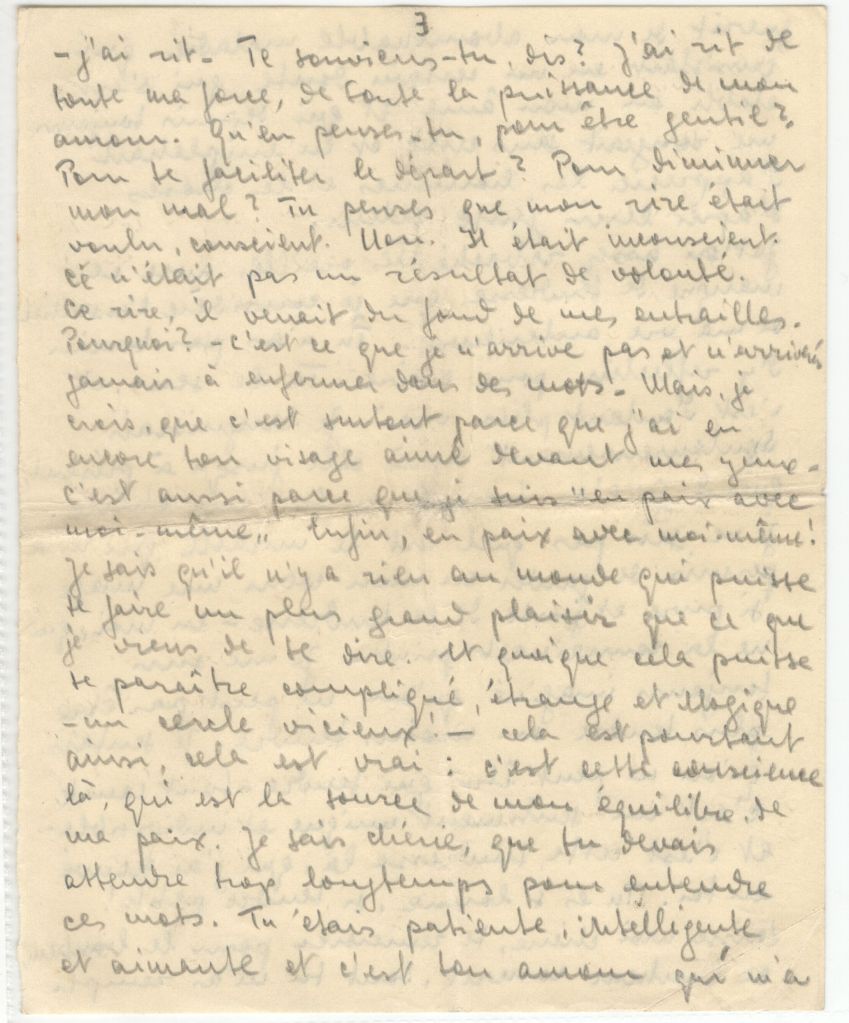 3
- j'ai rit - Te souviens-tu, dis? J'ai rit de
toute ma force, de toute la puissance de mon
amour. Qu'en penses-tu, pour être gentil?
Pour te faciliter le départ? Pour diminuer
mon mal? Tu penses que mon rire était
voulu, conscient. Non. Il était inconscient.
Ce n'était pas un résultat de volonté.
Ce rire, il venait du fond de mes entrailles.
Pourquoi? - C'est ce que je n'arrive pas et n'arriverés
jamais à enfermer dans des mots - Mais, je
crois, que c'est surtout parce que j'ai eu
encore ton visage aimé devant mes yeux -
c'est aussi parce que je suis "en paix avec
moi-même" Enfin, en paix avec moi-même!
Je sais qu'il n'y a rien au monde qui puisse
te faire un plus grand plaisir que ce que
je viens de te dire. Et quoique cela puisse
te paraître compliqué, étrange et illogique
- un cercle vicieux! - cela est pourtant
ainsi, cela est vrai : c'est cette conscience
là, qui est la source de mon équilibre, de
ma paix. Je sais chérie, que tu devais
attendre trop longtemps pour entendre
ces mots. Tu étais patiente, intelligente
et aimante et c'est ton amour qui m'a